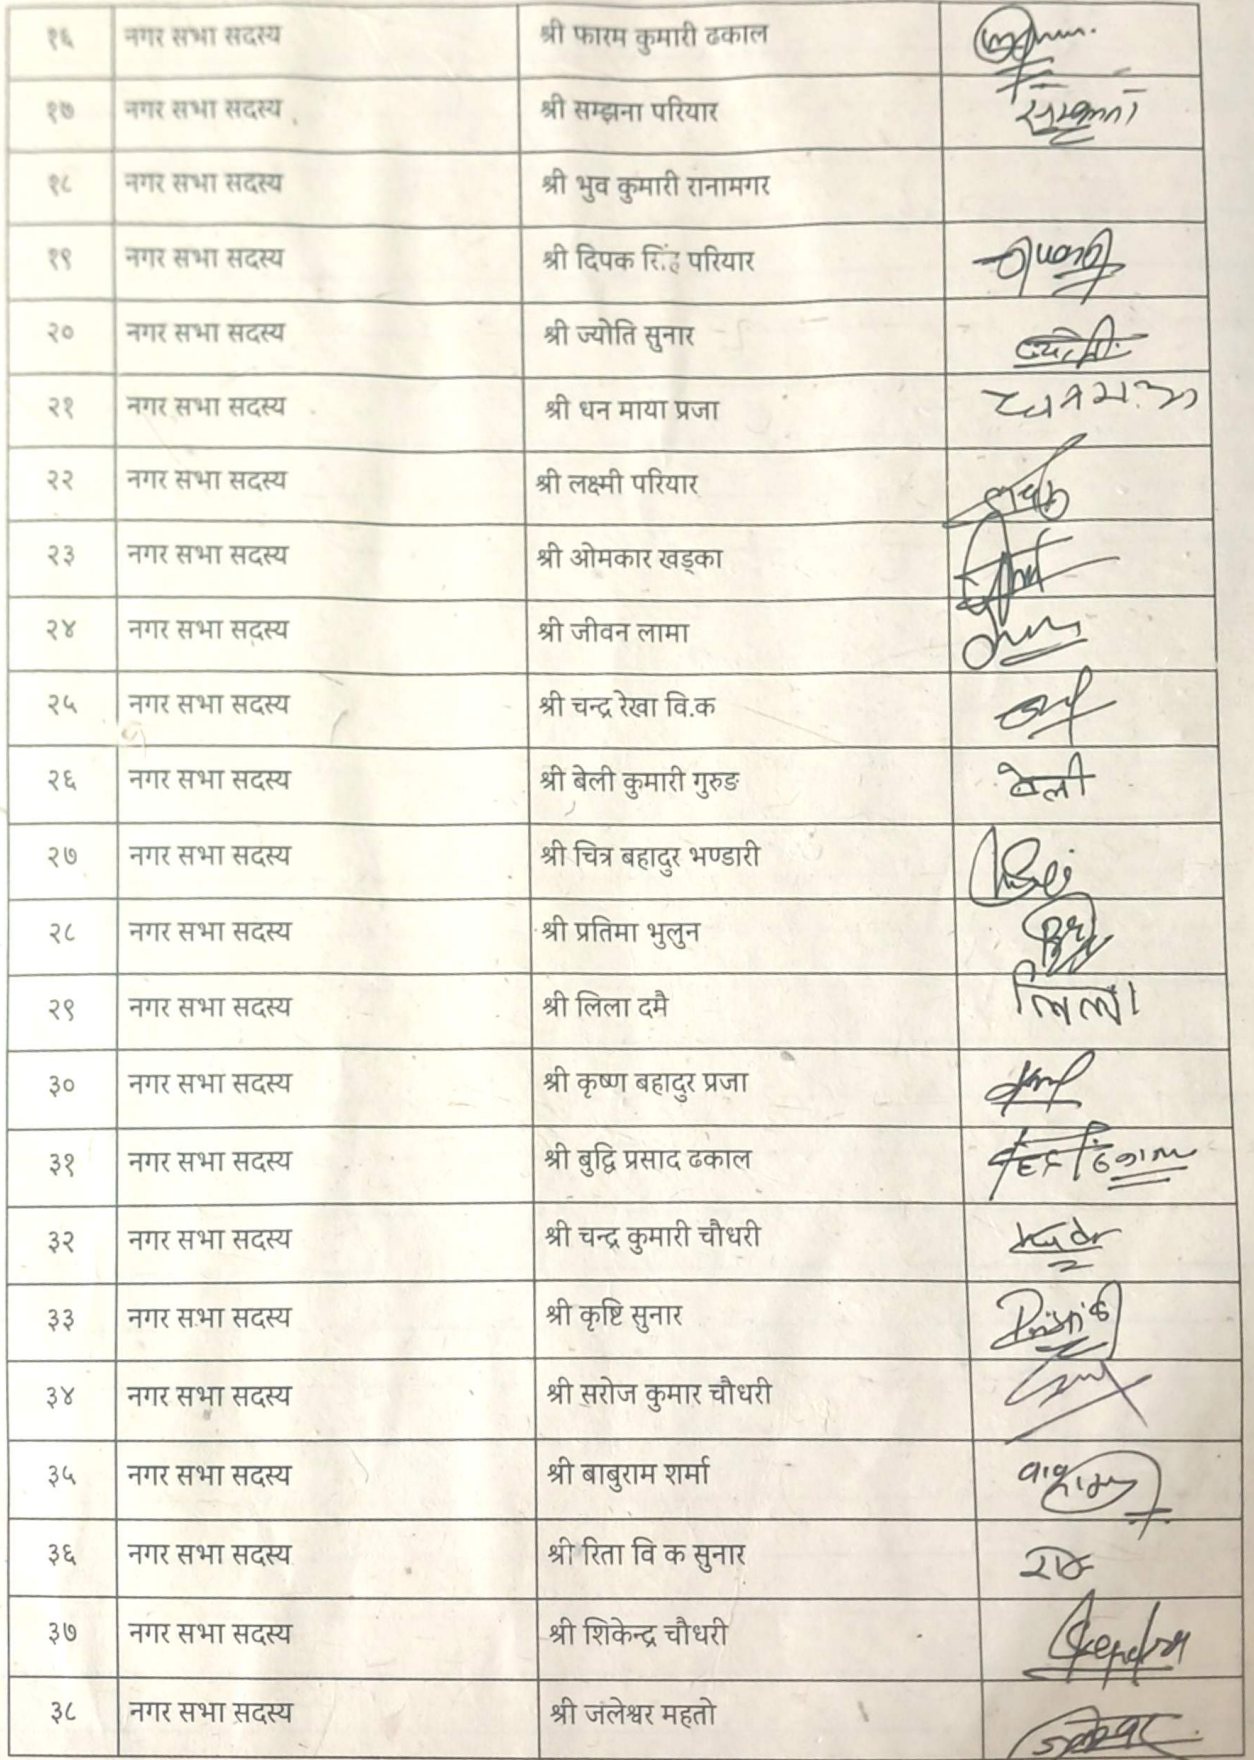 १६ नगर सभा सदस्य श्री फारम कुमारी ढकाल
१७ नगर सभा सदस्य श्री सम्झना परियार
१८ नगर सभा सदस्य श्री भुव कुमारी रानामगर
१९ नगर सभा सदस्य श्री दिपक सिंह परियार
२० नगर सभा सदस्य श्री ज्योति सुनार
२१ नगर सभा सदस्य श्री धन माया प्रजा
२२ नगर सभा सदस्य श्री लक्ष्मी परियार
२३ नगर सभा सदस्य श्री ओमकार खड्का
२४ नगर सभा सदस्य श्री जीवन लामा
२५ नगर सभा सदस्य श्री चन्द्र रेखा वि.क
२६ नगर सभा सदस्य श्री बेली कुमारी गुरुङ बेली
२७ नगर सभा सदस्य श्री चित्र बहादुर भण्डारी
२८ नगर सभा सदस्य श्री प्रतिमा भुलुन
२९ नगर सभा सदस्य श्री लिला दमै लिला
३० नगर सभा सदस्य श्री कृष्ण बहादुर प्रजा
३१ नगर सभा सदस्य श्री बुद्धि प्रसाद ढकाल
३२ नगर सभा सदस्य श्री चन्द्र कुमारी चौधरी
३३ नगर सभा सदस्य श्री कृष्टि सुनार
३४ नगर सभा सदस्य श्री सरोज कुमार चौधरी
३५ नगर सभा सदस्य श्री बाबुराम शर्मा
३६ नगर सभा सदस्य श्री रिता वि क सुनार
३७ नगर सभा सदस्य श्री शिकेन्द्र चौधरी
३८ नगर सभा सदस्य श्री जलेश्वर महतो